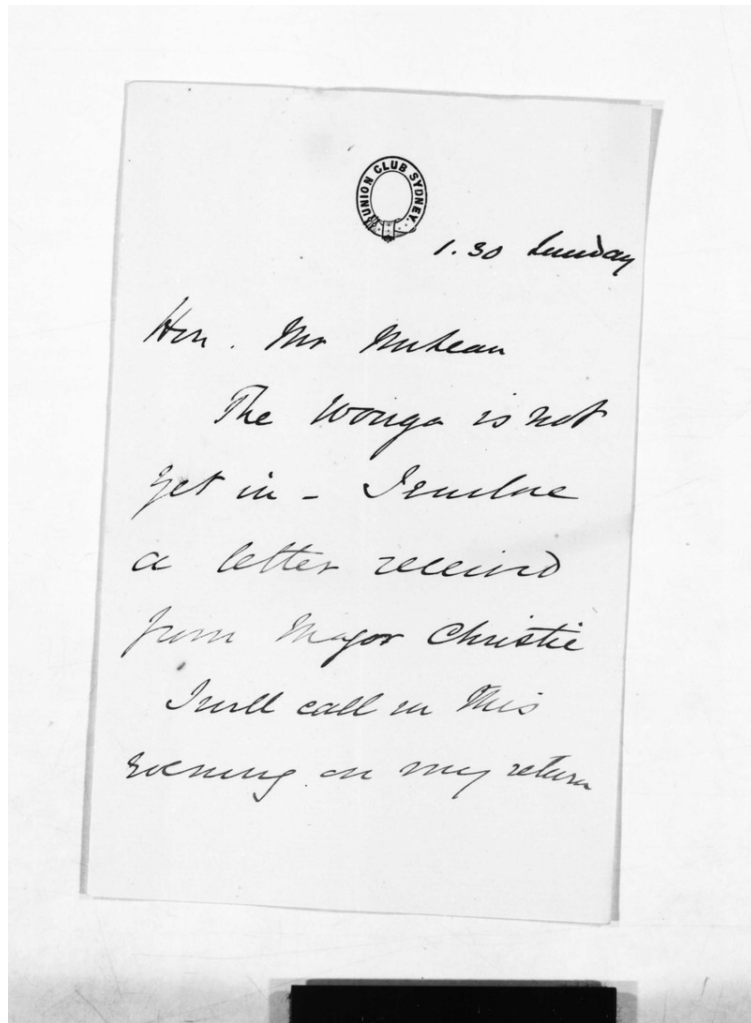 UNION CLUB SYDNEY.
1.30 Sunday
Hon. Mr McLean
The Wonga is not
yet in - I enclose
a letter received
from Major Christie
I will call in this
evening on my return